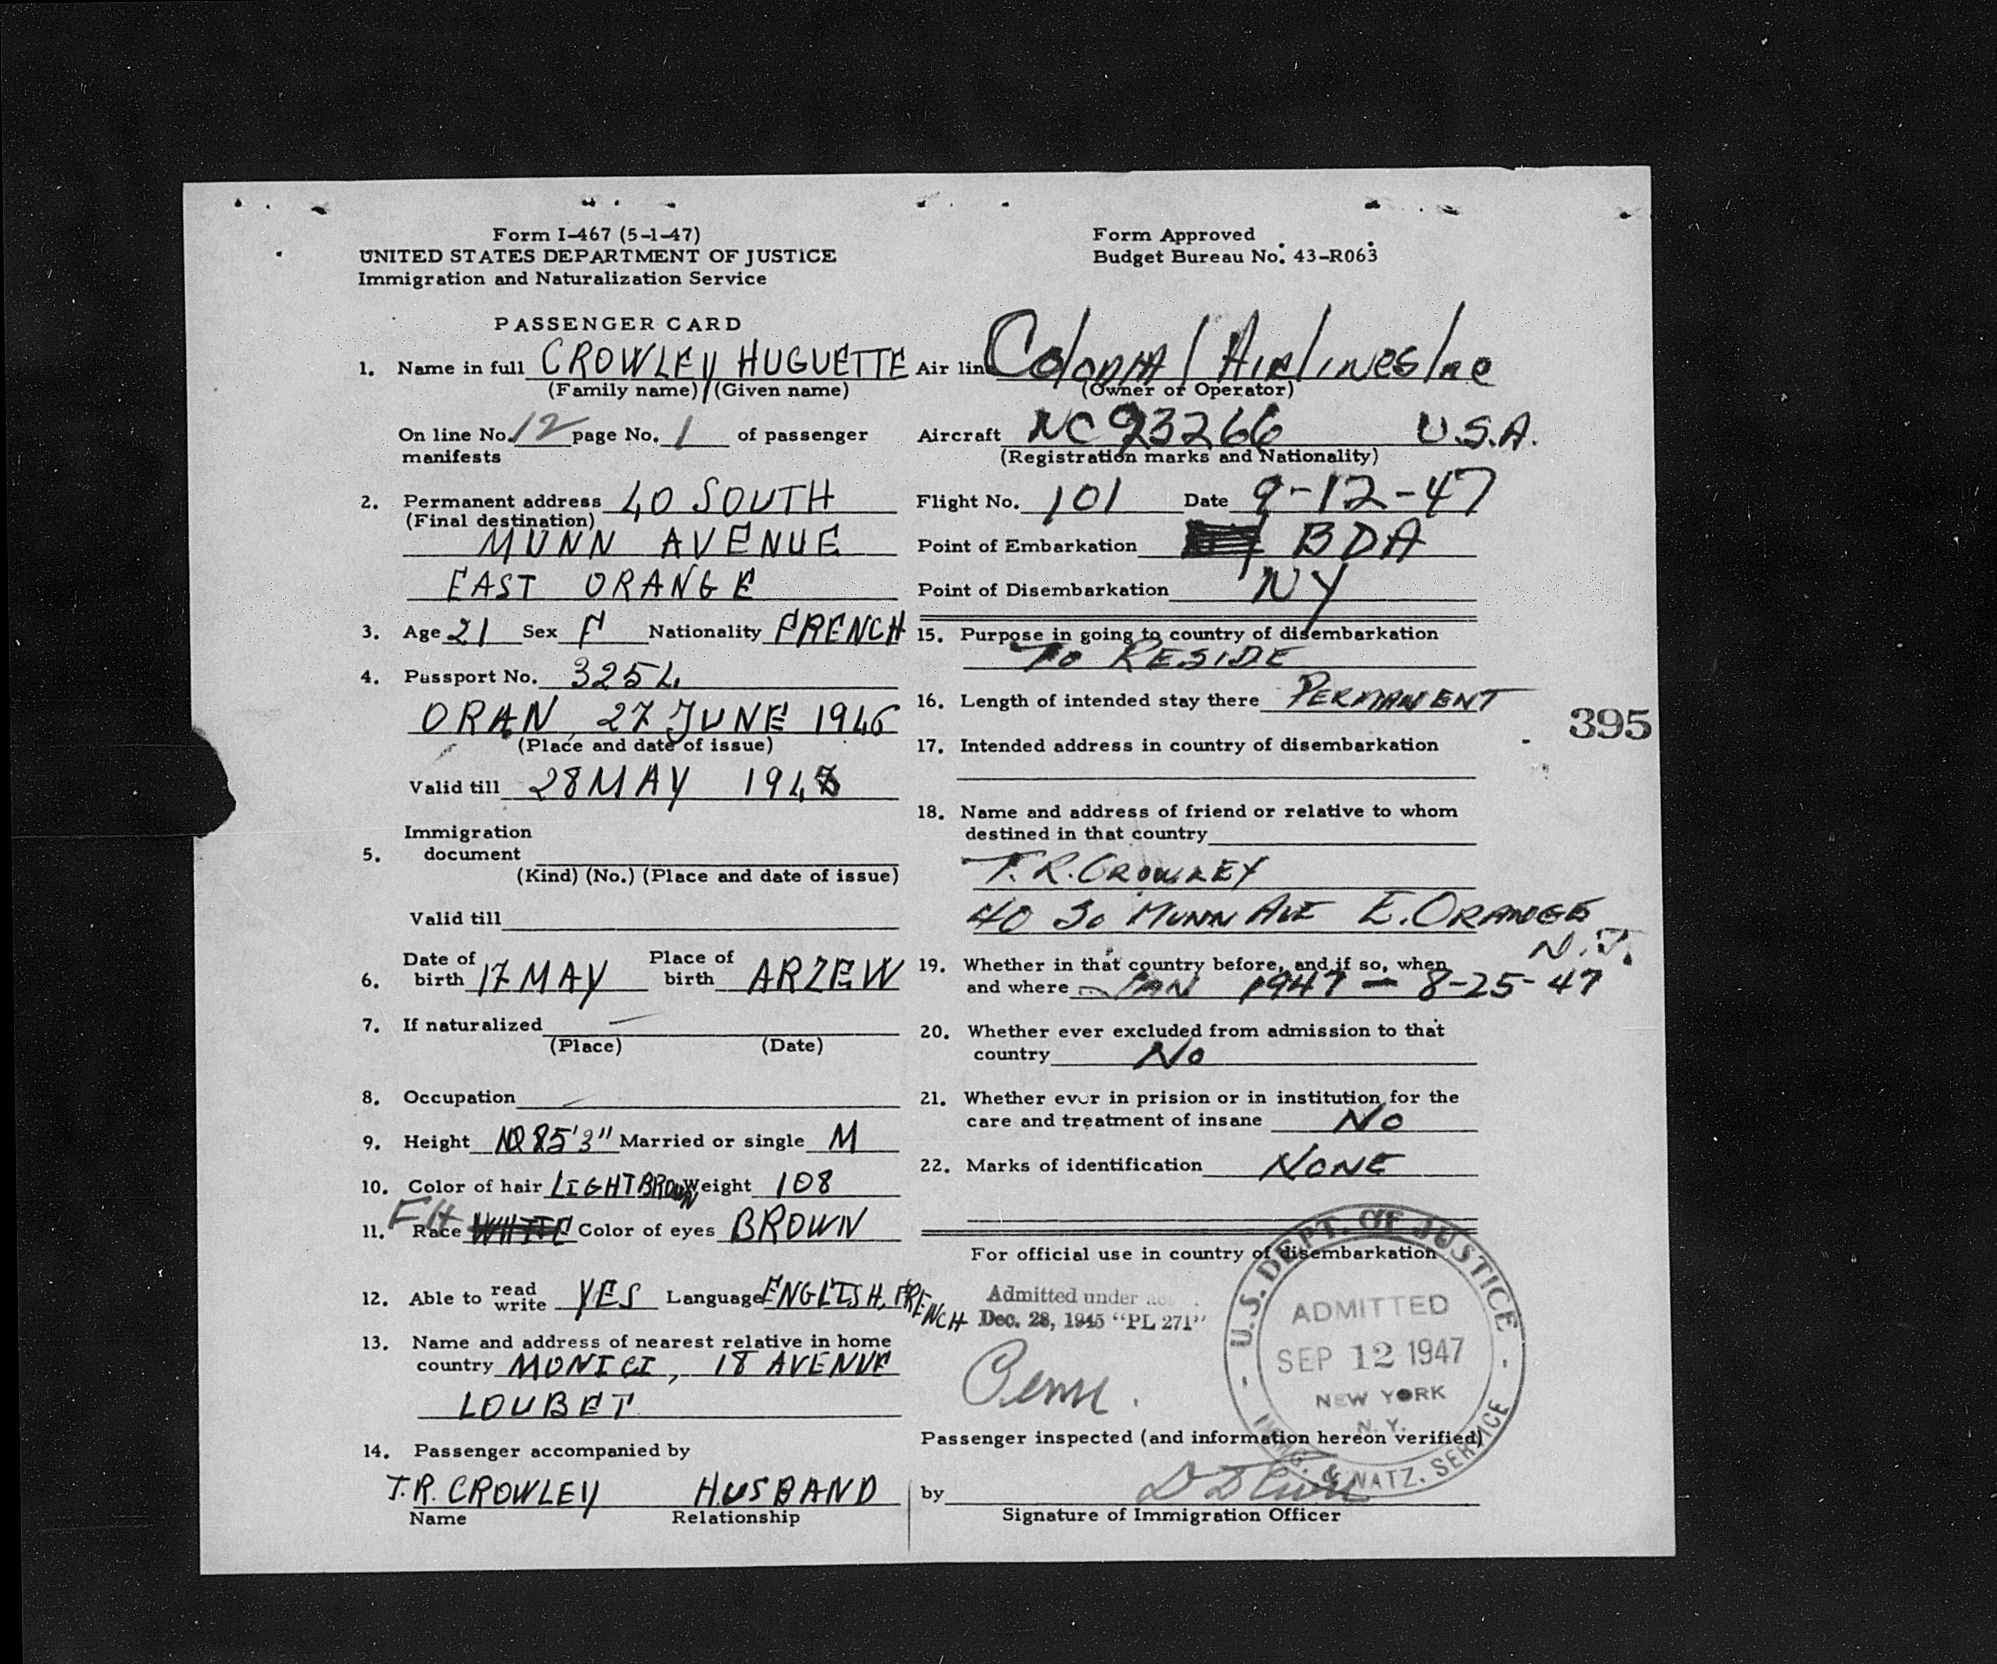 Form I-467 (5-1-47)
UNITED STATES DEPARTMENT OF JUSTICE
Immigration and Naturalization Service
Form Approved
Budget Bureau No. 43-R063
PASSENGER CARD
1. Name in full CROWLEY HUGUETTE
(Family name) (Given name)
On line No. 12 page No. 1 of passenger
manifests
2. Permanent address 40 SOUTH
(Final destination)
MUNN AVENUE
EAST ORANGE
3. Age 21 Sex F Nationality FRENCH
4. Passport No. 3254
ORAN, 27 JUNE 1946
(Place and date of issue)
Valid till 28 MAY 194
Immigration
5. document
(Kind) (No.) (Place and date of issue)
Valid till
6. Date of birth 17 MAY Place of birth ARZEW
7. If naturalized
(Place) (Date)
8. Occupation
9. Height 5'3" Married or single M
10. Color of hair LIGHT BROWN Weight 108
11. Race WHITE FH Color of eyes BROWN
12. Able to read write YES Language ENGLISH, FRENCH
13. Name and address of nearest relative in home
country MONICI, 18 AVENUE
LOUBET
14. Passenger accompanied by
T.R. CROWLEY HUSBAND
Name Relationship
Air line Colonial Airlines Inc
(Owner or Operator)
Aircraft NC 93266 U.S.A.
(Registration marks and Nationality)
Flight No. 101 Date 9-12-47
Point of Embarkation BDA
Point of Disembarkation NY
15. Purpose in going to country of disembarkation
TO RESIDE
16. Length of intended stay there PERMANENT
395
17. Intended address in country of disembarkation
18. Name and address of friend or relative to whom
destined in that country
T. R. CROWLEY
40 So MUNN AVE E. ORANGE
N.J.
19. Whether in that country before, and if so, when
and where JAN 1947 - 8-25-47
20. Whether ever excluded from admission to that
country No
21. Whether ever in prision or in institution for the
care and treatment of insane No
22. Marks of identification NONE
For official use in country of disembarkation
Admitted under
Dec. 28, 1945 "PL 271"
U.S. DEPT. OF JUSTICE
ADMITTED
SEP 12 1947
NEW YORK
N.Y.
IMMIG. & NATZ. SERVICE
Passenger inspected (and information hereon verified)
by
Signature of Immigration Officer